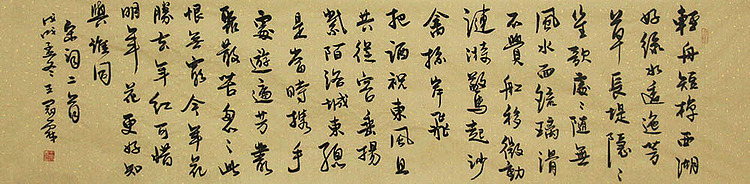 輕舟短棹西湖
好綠水逶迤芳
草長堤隱〻
笙歌處〻隨無
風水面琉璃滑
不覺船移微動
漣漪驚起沙
禽掠岸飛
把酒祝東風且
共從容垂楊
紫陌洛城東總
是當時攜手
處遊遍芳叢
聚散苦匆〻此
恨無窮今年花
勝去年紅可惜
明年花更好知
與誰同
宋詞二首
王